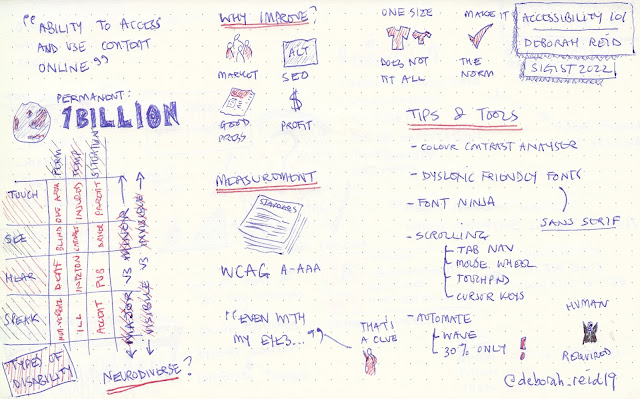 "ABILITY TO ACCESS
AND USE CONTENT
ONLINE"
PERMANENT:
1 BILLION
PERM
TEMP
SITUATION
TOUCH
ONE ARM
INJURED
PARENT
SEE
BLIND
CATARACT
DRIVER
HEAR
DEAF
INFECTION
PUB
SPEAK
NON-VERBAL
ILL
ACCENT
MAJOR VS MINOR
VISIBLE VS INVISIBLE
TYPES OF
DISABILITY
NEURODIVERSE?
WHY IMPROVE?
MARKET
ALT
SEO
GOOD
PRESS
$
PROFIT
MEASUREMENT
STANDARDS
WCAG A-AAA
"EVEN WITH
MY EYES..."
THAT'S
A CLUE
ONE SIZE
DOES NOT
FIT ALL
MAKE IT
THE
NORM
ACCESSIBILITY 101
DEBORAH REID
SIGIST 2022
TIPS & TOOLS
- COLOUR CONTRAST ANALYSER
- DYSLEXIC FRIENDLY FONTS
- FONT NINJA
SANS SERIF
- SCROLLING
TAB NAV
MOUSE WHEEL
TOUCHPAD
CURSOR KEYS
- AUTOMATE
WAVE
30% ONLY !
HUMAN
REQUIRED
@deborah_reid19